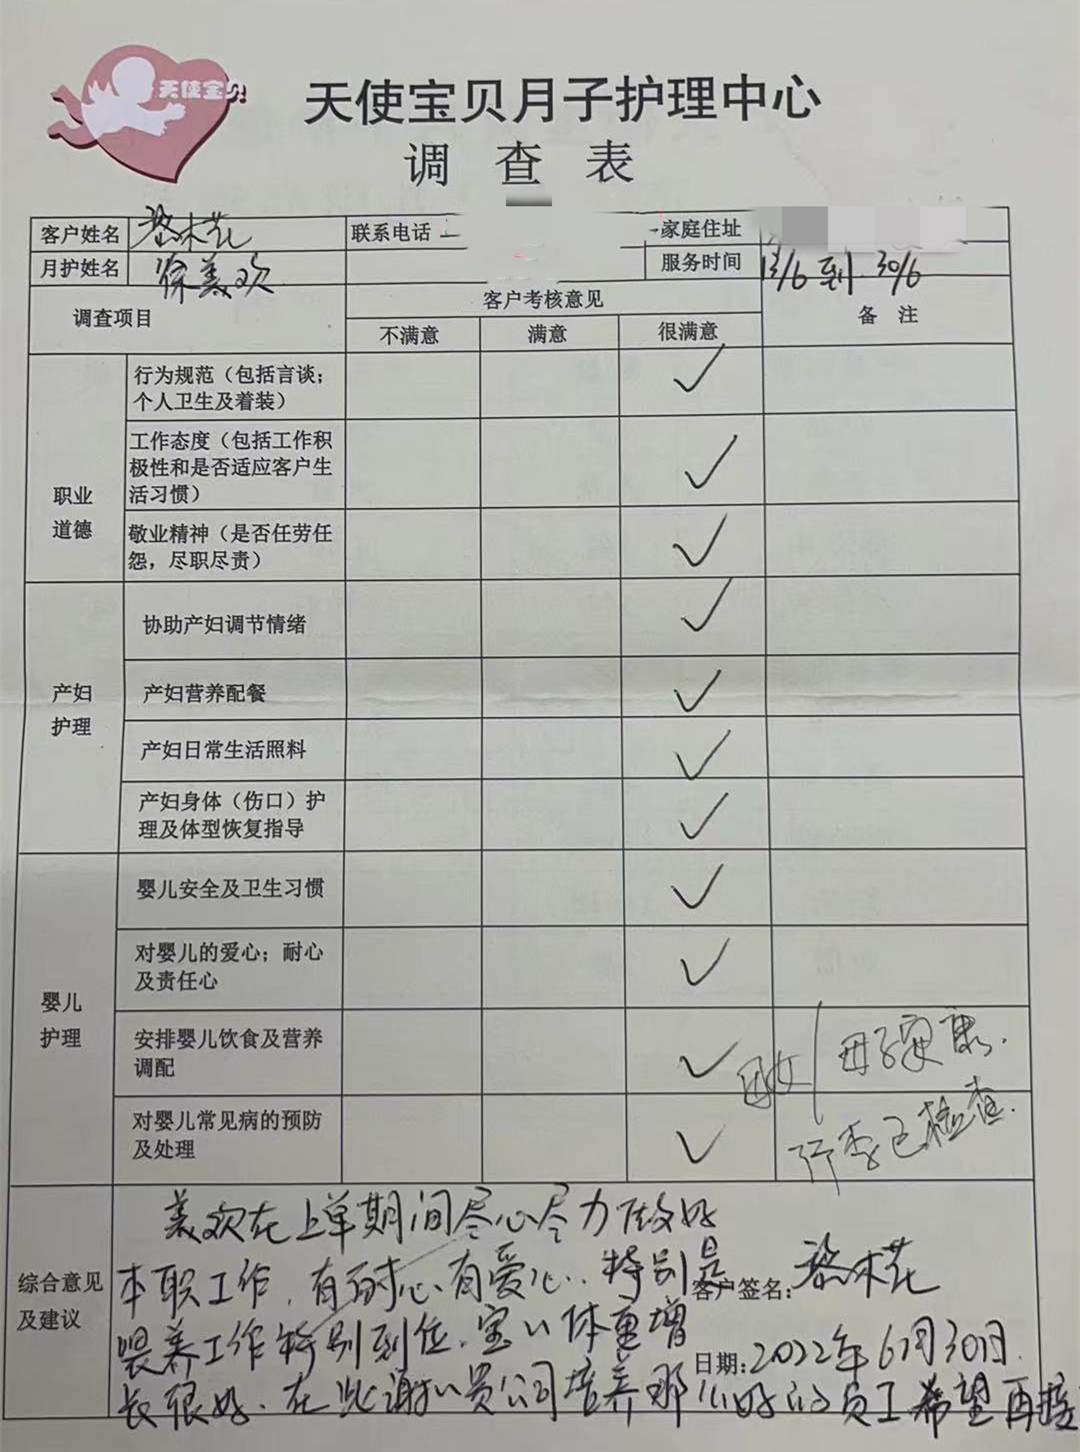 天使宝贝
天使宝贝月子护理中心
调 查 表
客户姓名 黎木花 联系电话 家庭住址
月护姓名 徐美欢 服务时间 13/6到30/6
调查项目 客户考核意见 备 注
不满意 满意 很满意
职业
道德
行为规范（包括言谈；
个人卫生及着装） ✓
工作态度（包括工作积
极性和是否适应客户生
活习惯） ✓
敬业精神（是否任劳任
怨，尽职尽责） ✓
产妇
护理
协助产妇调节情绪 ✓
产妇营养配餐 ✓
产妇日常生活照料 ✓
产妇身体（伤口）护
理及体型恢复指导 ✓
婴儿
护理
婴儿安全及卫生习惯 ✓
对婴儿的爱心；耐心
及责任心 ✓
安排婴儿饮食及营养
调配 ✓
对婴儿常见病的预防
及处理 ✓
母女 母子安康.
行李已检查.
综合意见
及建议
美欢在上单期间尽心尽力做好
本职工作，有耐心有爱心，特别是
喂养工作特别到位，宝宝体重增
长很好，在此谢谢贵公司培养那么好的员工希望再接
客户签名：黎木花
日期：2022年6月30日.